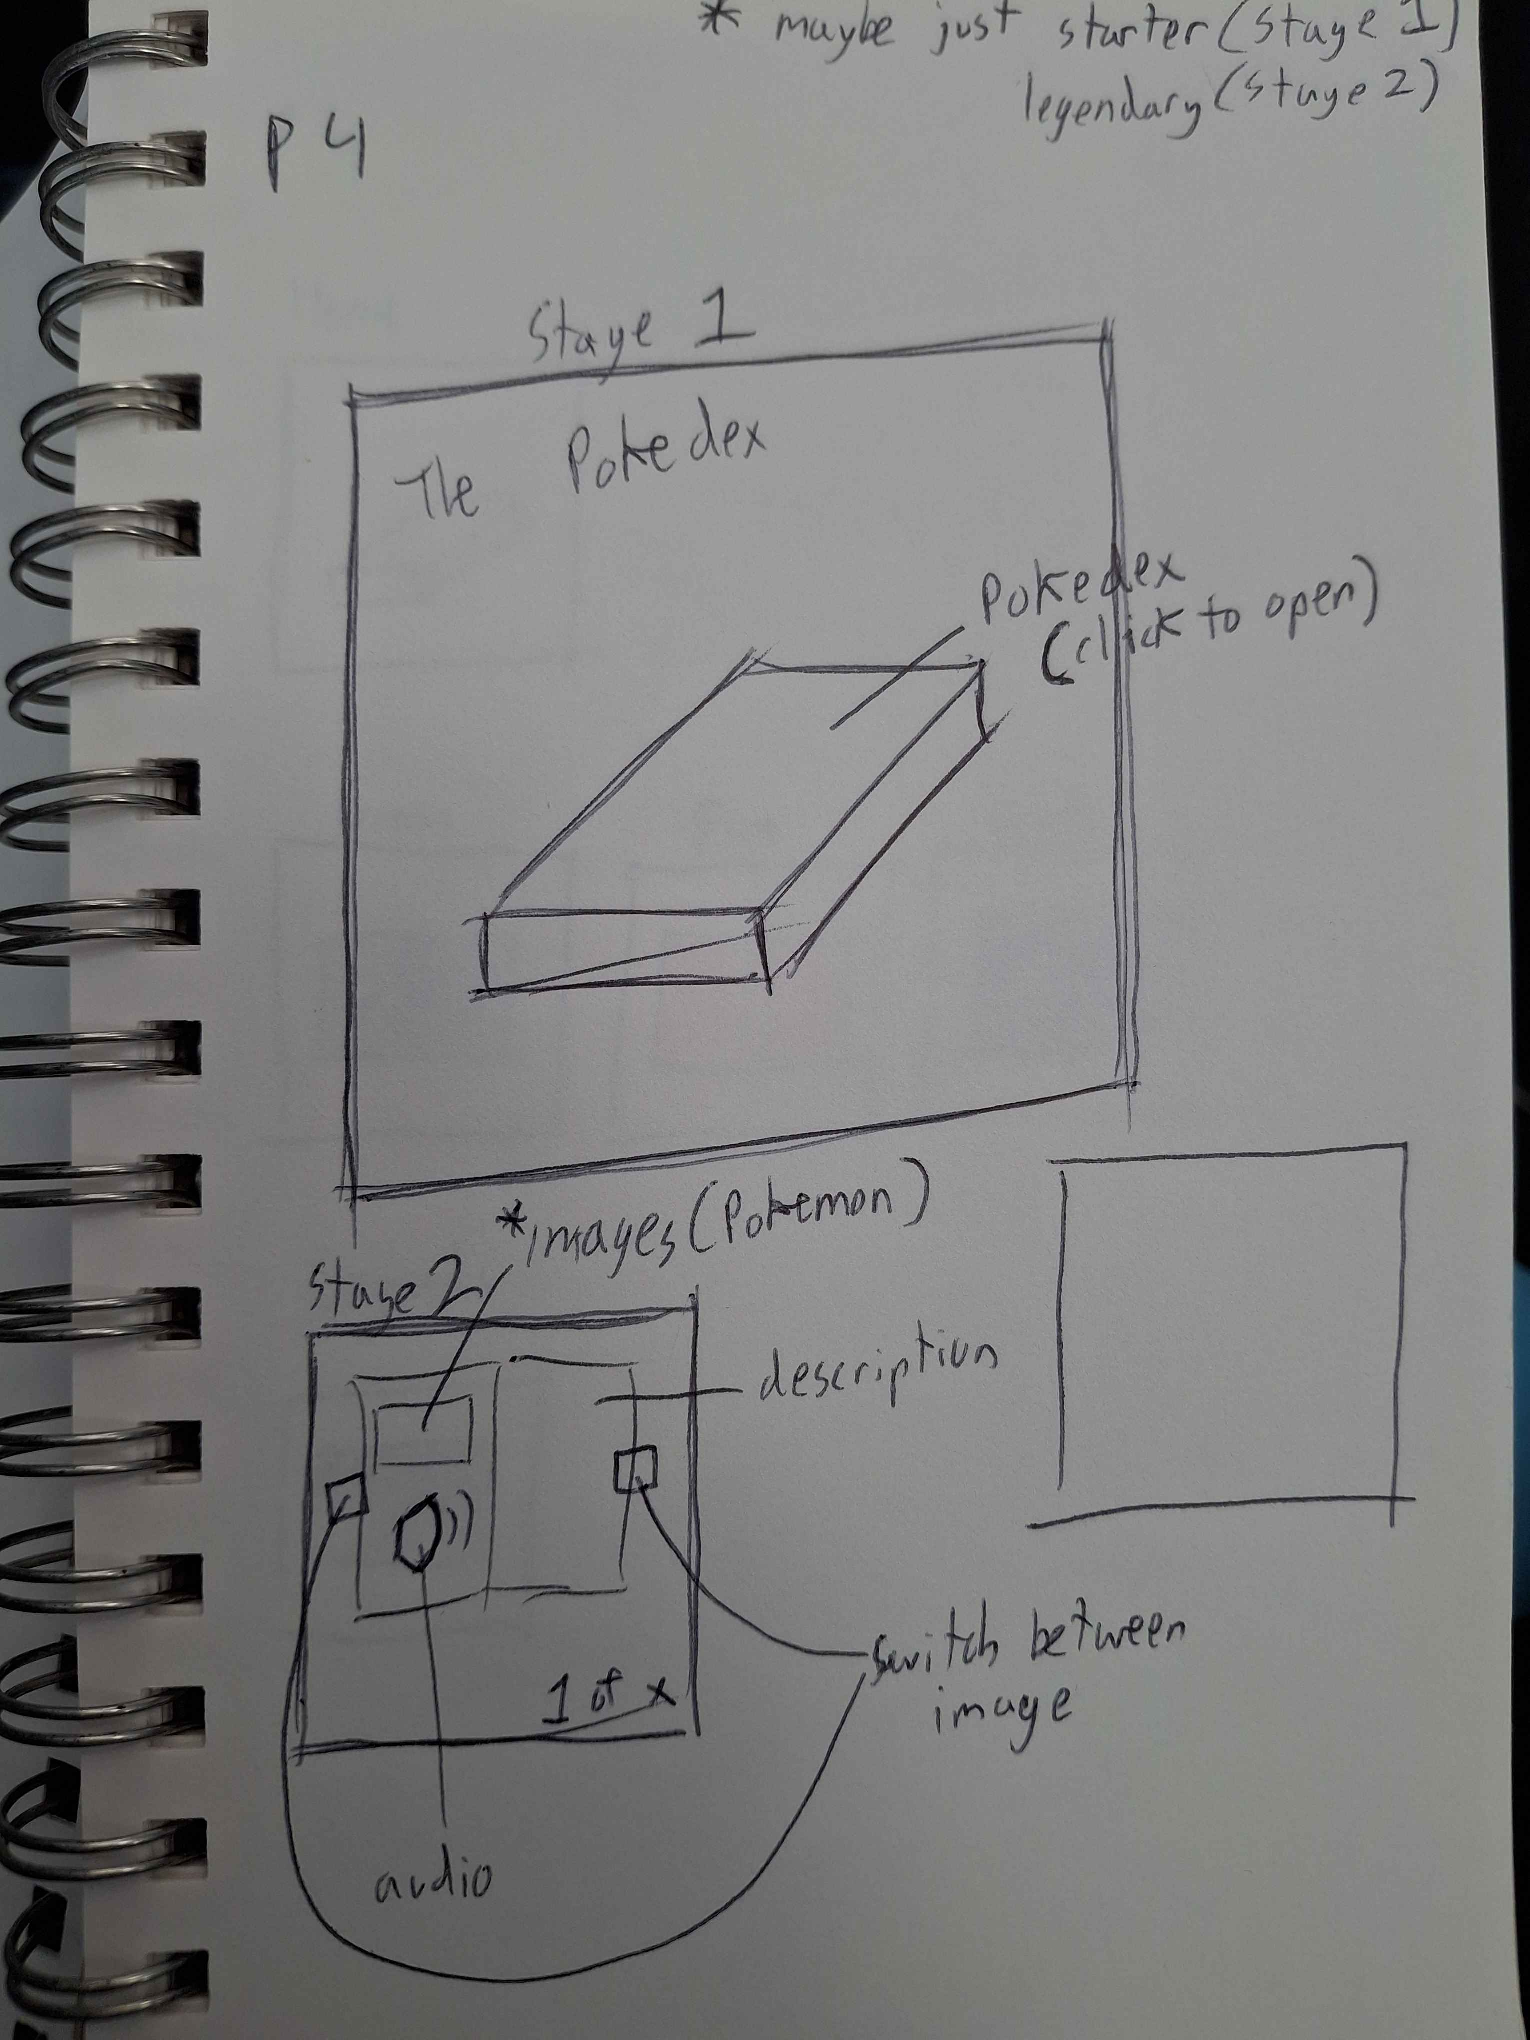 * maybe just starter (stage 1)
legendary (stage 2)
P 4
Stage 1
The Pokedex
Pokedex
(click to open)
*images (Pokemon)
Stage 2
description
switch between
image
1 of x
audio